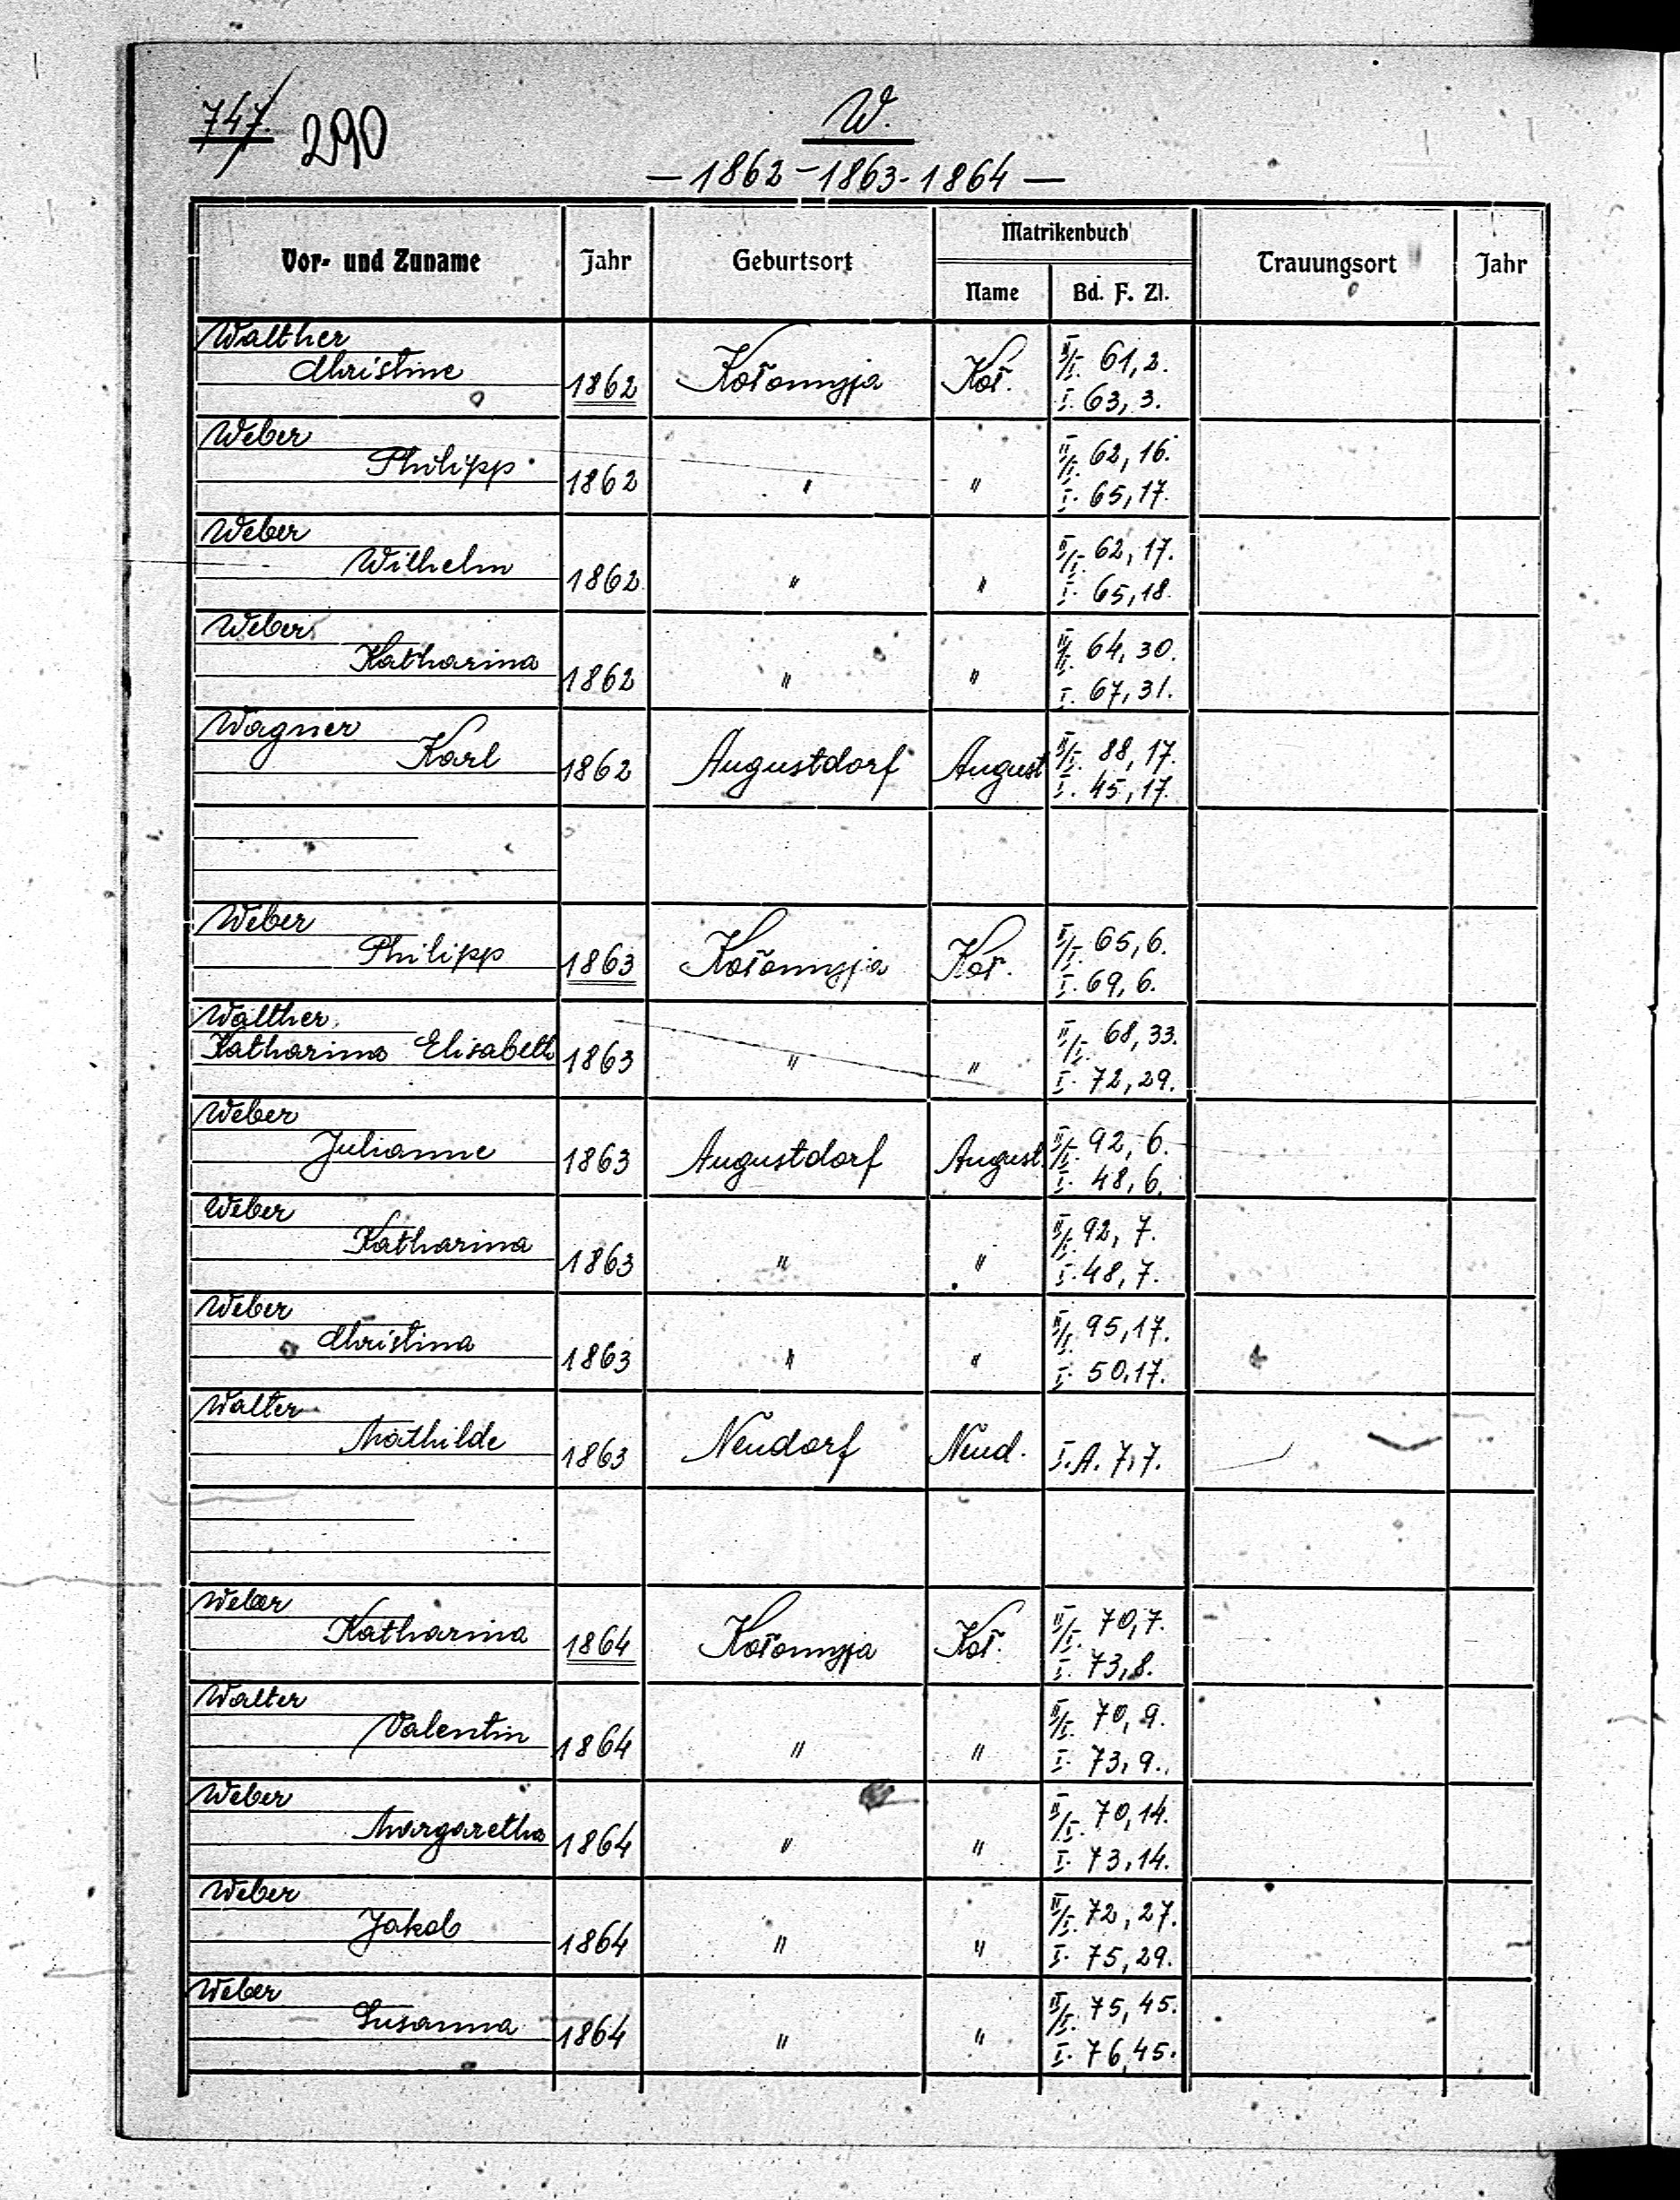 747. 290
W.
— 1862 – 1863 - 1864 —
Vor- und Zuname Jahr Geburtsort Matrikenbuch Trauungsort Jahr
Name Bd. F. Zl.
Walther
Christine 1862 Kołomyja Koł. II/I. 61, 2.
I. 63, 3.
Weber
Philipp 1862 " " II/I. 62, 16.
I. 65, 17.
Weber
Wilhelm 1862 " " II/I. 62, 17.
I. 65, 18.
Weber
Katharina 1862 " " II/I. 64, 30.
I. 67, 31.
Wagner
Karl 1862 Augustdorf August II/I. 88, 17.
I. 45, 17.
Weber
Philipp 1863 Kołomyja Koł. II/I. 65, 6.
I. 69, 6.
Walther
Katharina Elisabeth 1863 " " II/I. 68, 33.
I. 72, 29.
Weber
Julianne 1863 Augustdorf August. II/I. 92, 6.
I. 48, 6.
Weber
Katharina 1863 " " II/I. 92, 7.
I. 48, 7.
Weber
Christina 1863 " " II/I. 95, 17.
I. 50, 17.
Walter
Mathilde 1863 Neudorf Neud. I. A. 7, 7.
Weber
Katharina 1864 Kołomyja Koł. II/I. 70, 7.
I. 73, 8.
Walter
Valentin 1864 " " II/I. 70, 9.
I. 73, 9.
Weber
Margaretha 1864 " " II/I. 70, 14.
I. 73, 14.
Weber
Jakob 1864 " " II/I. 72, 27.
I. 75, 29.
Weber
Susanna 1864 " " II/I. 75, 45.
I. 76, 45.